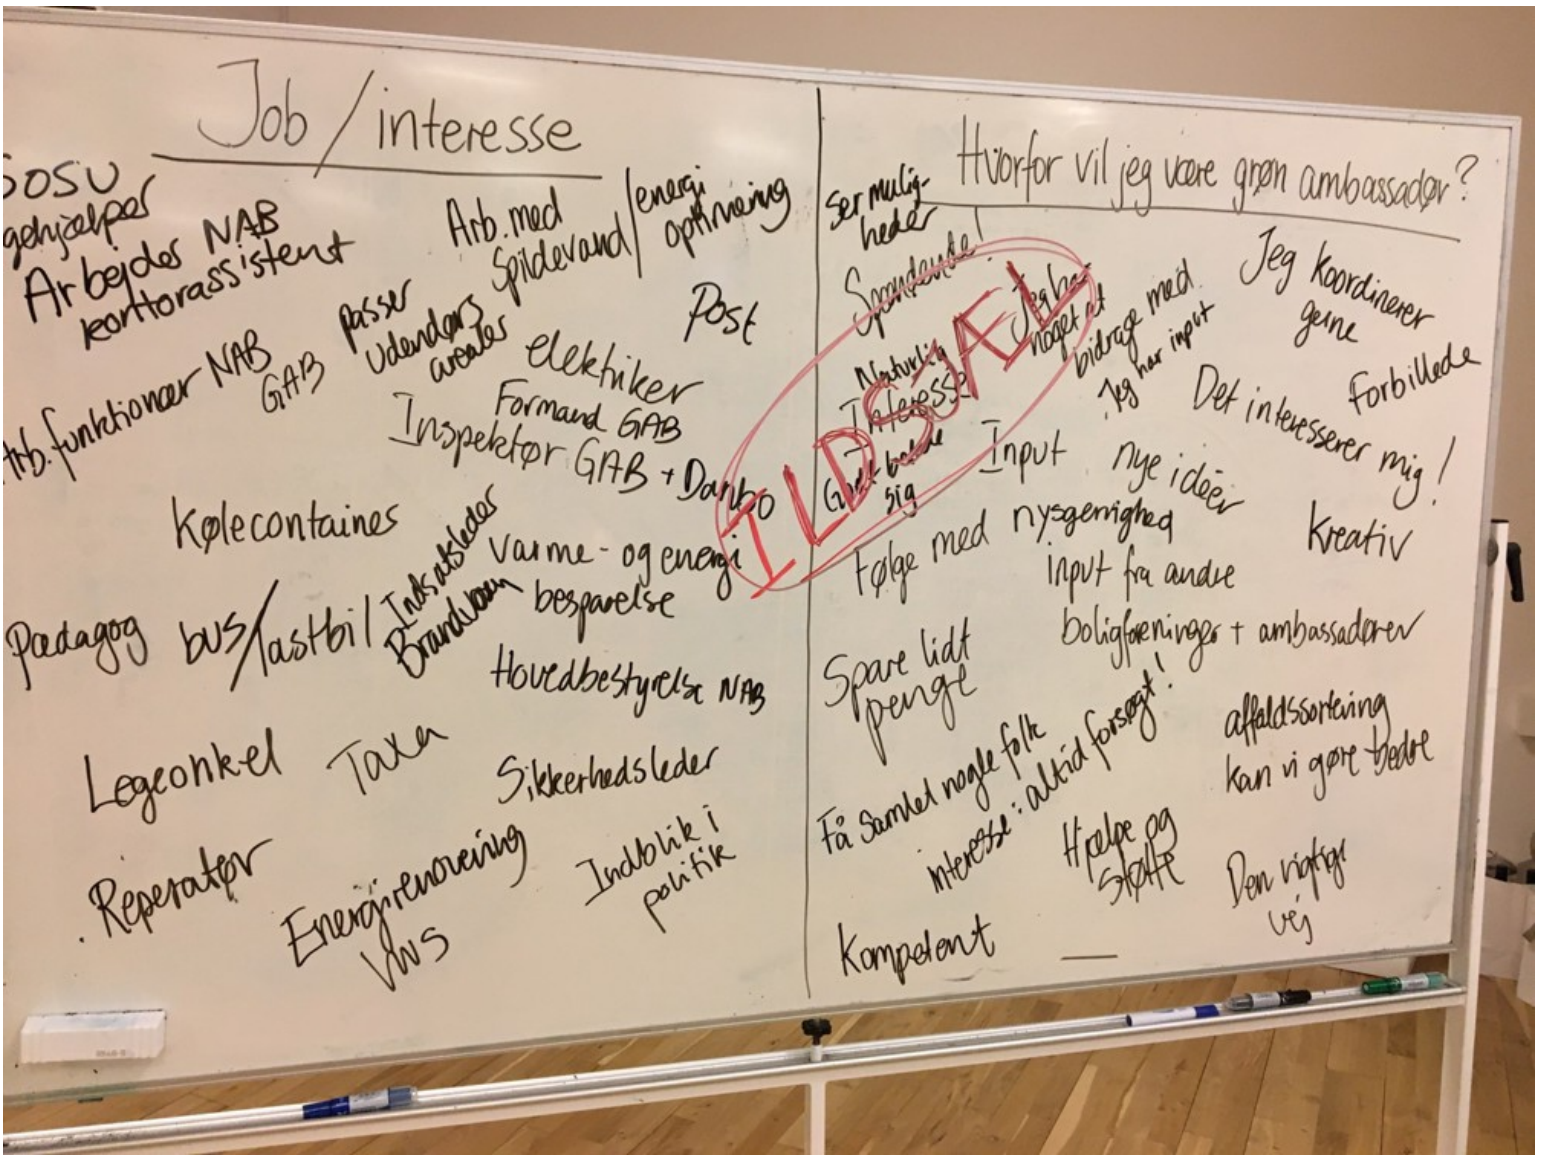 Job / interesse
SOSU
Arbejder NAB
kontorassistent
Arb. med
Spildevand /
energi
optimering
Post
Arb. funktionær NAB
GAB
passer
udendørs
arealer
elektriker
Formand GAB
Inspektør GAB + Danbo
Kølecontaines
varme- og energi
besparelse
Pædagog
bus/lastbil
Indsatsleder
Brandvæsn
Hovedbestyrelse NAB
Legeonkel
Taxa
Sikkerhedsleder
Reperatør
Energirenovering
VVS
Indblik i
politik
Hvorfor vil jeg være grøn ambassadør?
Ser mulig-
heder
Spændende!
ILDSJÆL
Jeg har
noget at
bidrage med
Jeg har input
Jeg koordinerer
gerne
Naturlig
Interesse
sig
Forbillede
Det interesserer mig!
Input
nye idéer
Følge med
nysgerrighed
Kreativ
input fra andre
boligforeninger + ambassadører
Spare lidt
penge
Få samlet nogle folk
interesse: altid forsøgt!
affaldssortering
kan vi gøre bedre
Hjælpe og
støtte
Den rigtige
vej
Kompetent